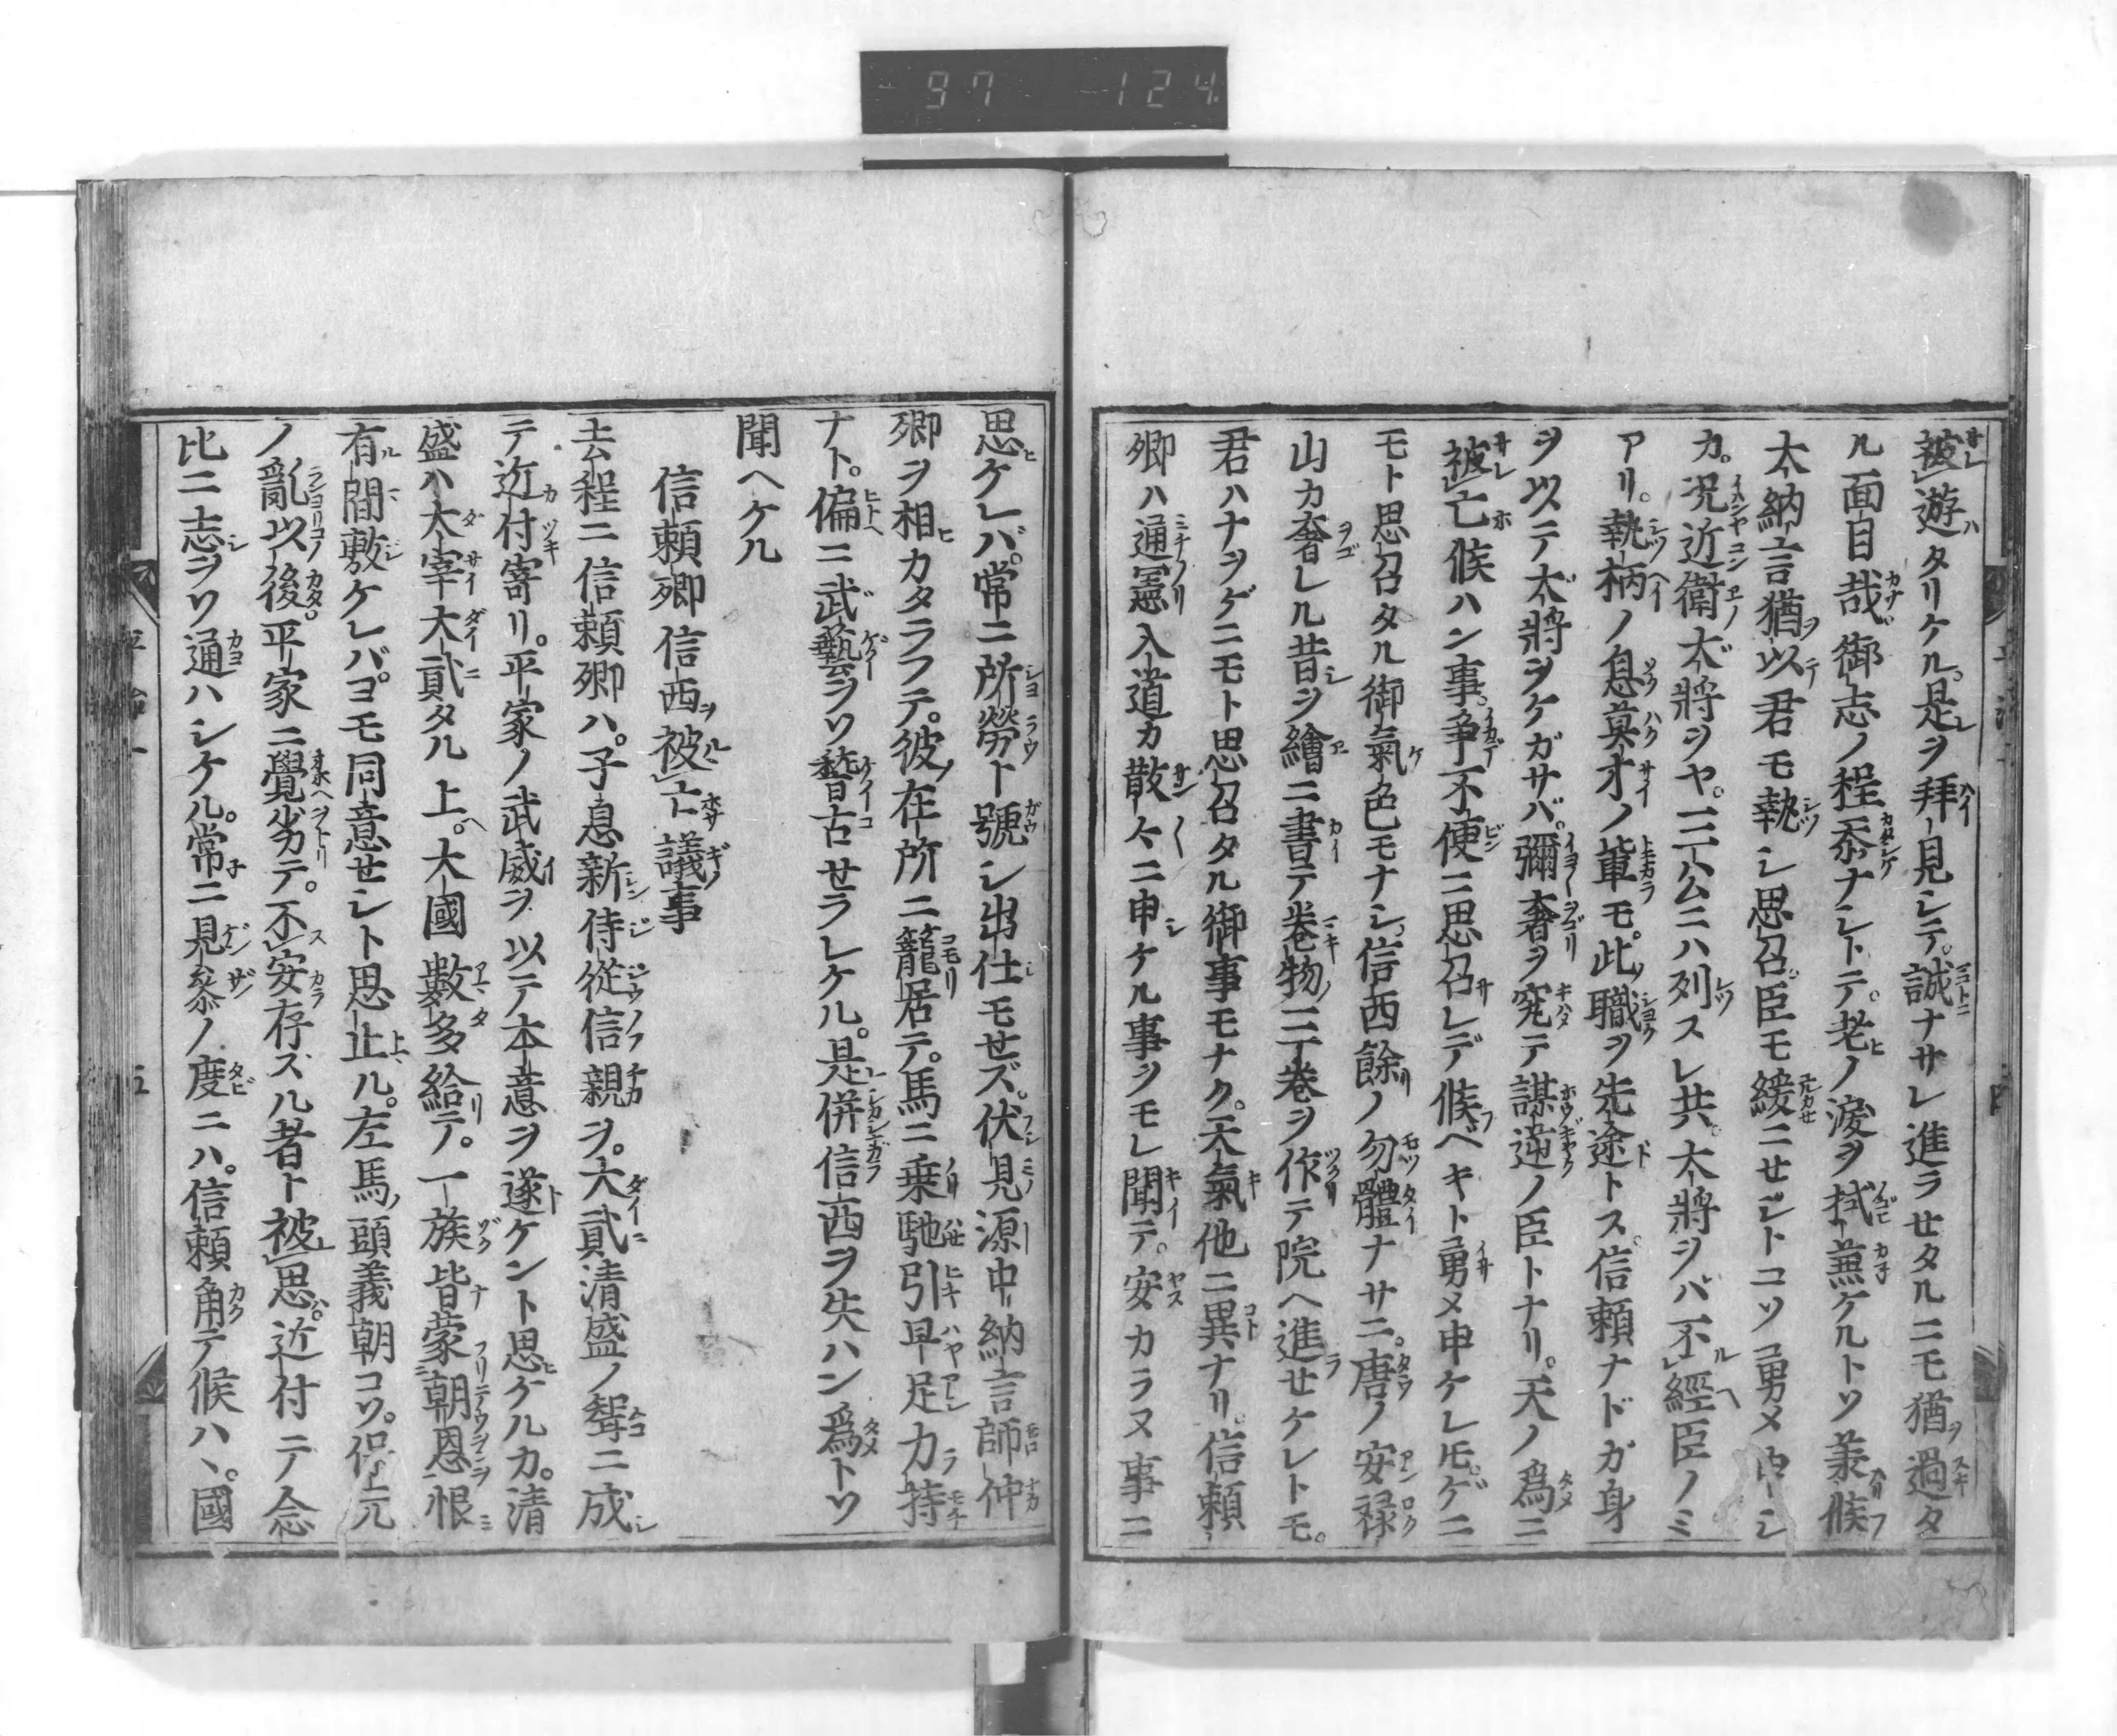 - 97 - 124.
被レ遊タリケル。是ヲ拝見シテ。誠ナサレ進ラセタルニモ猶過タ
ル面目哉。御志ノ程忝ナシトテ。老ノ涙ヲ拭兼ケルトソ兼候
大納言猶以君モ執シ思召。臣モ緩ニせジトコソ勇メ申シ
カ。况近衛大將ヲヤ。三公ニハ列スレ共。大將ヲバ不レ經臣ノミ
アリ。執柄ノ息英才ノ輩モ。此職ヲ先途トス。信頼ナドガ身
ヲ以テ大將ヲケガサバ。彌奢ヲ究テ謀逆ノ臣トナリ。天ノ爲ニ
被レ亡候ハン事。争不便ニ思召レデ候ベキト勇メ申ケレ𪜈。ゲニ
モト思召タル御氣色モナシ。信西餘ノ勿體ナサニ。唐ノ安禄
山カ奢レル昔ヲ繪ニ書テ巻物三巻ヲ作テ院ヘ進せケレトモ。
君ハナヲゲニモト思召タル御事モナク。天氣他ニ異ナリ。信頼
卿ハ通憲入道カ散々ニ申ケル事ヲモレ聞テ。安カラヌ事ニ
思ケレバ。常ニ所勞ト號シ出仕モせズ。伏見源中納言師仲
卿ヲ相カタラフテ。彼在所ニ籠居テ。馬ニ乗馳引早足力持
ナト。偏ニ武藝ヲソ稽古せラレケル。是併信西ヲ失ハン爲トソ
聞ヘケル
信頼卿信西ヲ被レ亡議事
去程ニ信頼卿ハ。子息新侍從信親ヲ。大貳清盛ノ聟ニ成
テ近付寄リ。平家ノ武威ヲ以テ本意ヲ遂ケント思ケルカ。清
盛ハ大宰大貳タル上。大國數多給テ。一族皆蒙朝恩恨
有間敷ケレバ。ヨモ同意せシト思止ル。左馬頭義朝コソ。保元
ノ亂以後平家ニ覺劣テ。不安存ズル者ト被思。近付テ念
比ニ志ヲソ通ハシケル。常ニ見參ノ度ニハ。信頼角テ候ハヽ。國